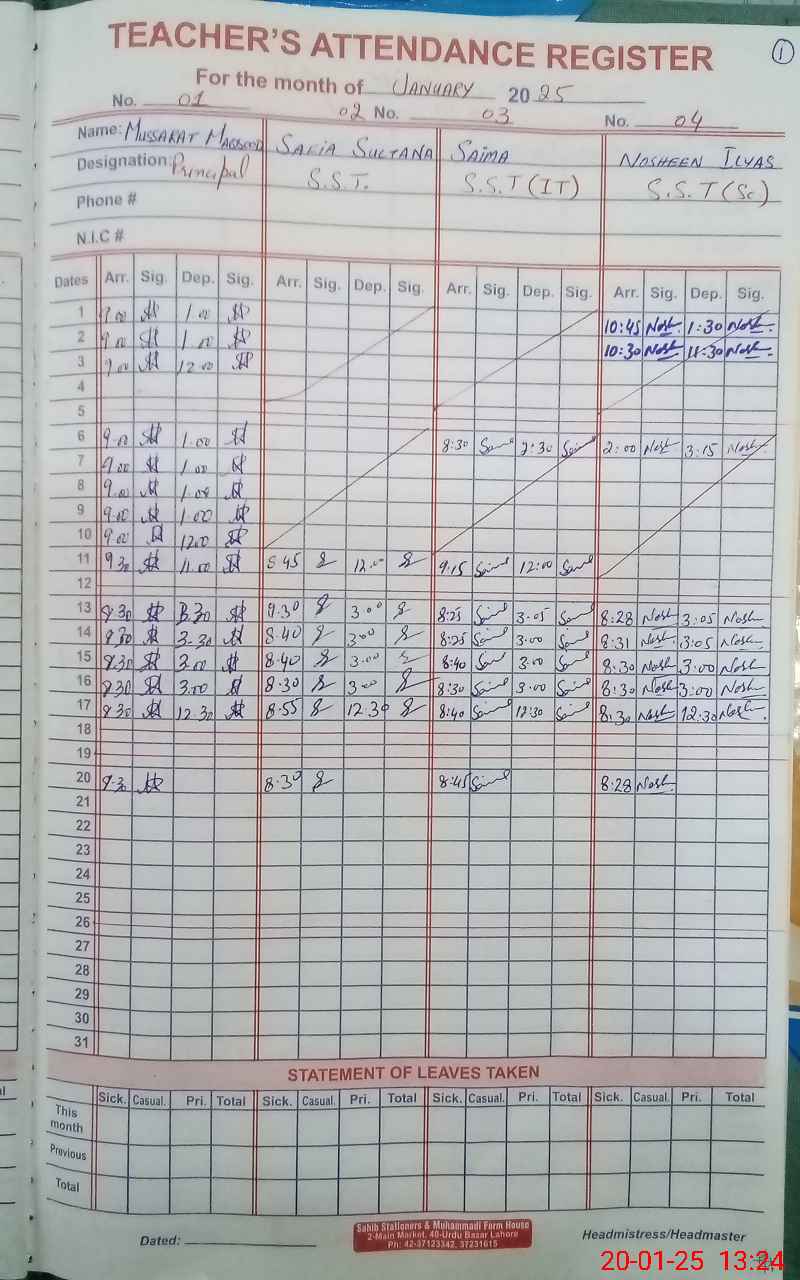 TEACHER'S ATTENDANCE REGISTER
1
For the month of JANUARY 2025
No. 01 02 No. 03 No. 04
Name: MUSSARAT MAQSOOD SAFIA SULTANA SAIMA NOSHEEN ILYAS
Designation: Principal S.S.T. S.S.T (IT) S.S.T (Sc)
Phone #
N.I.C #
Dates Arr. Sig. Dep. Sig. Arr. Sig. Dep. Sig. Arr. Sig. Dep. Sig. Arr. Sig. Dep. Sig.
1 9.00 1.00 10:45 Nosh. 1:30 Nosh.
2 9.00 1.00 10:30 Nosh 11:30 Nosh.
3 9.00 12.00
4
5
6 9.00 1.00 8:30 2:30 2:00 Nosh 3:15 Nosh
7 9.00 1.00
8 9.00 1.00
9 9.00 1.00
10 9.00 12.00
11 9.30 8.45 12.00 9:15 12:00
12
13 8.30 3.30 9.30 3.00 8:25 3.05 8:28 Nosh 3:05 Nosh
14 8.30 3.30 8.40 3.00 8:25 3.00 8:31 Nosh. 3:05 Nosh.
15 8.30 3.00 8.40 3.00 8:40 3.00 8:30 Nosh 3:00 Nosh
16 8.30 3.00 8.30 3.00 8:30 3.00 8:30 Nosh 3:00 Nosh
17 8.30 12.30 8.55 12.30 8:40 12:30 8:30 Nosh 12:30 Nosh.
18
19
20 8.30 8.30 8:45 8:28 Nosh.
21
22
23
24
25
26
27
28
29
30
31
STATEMENT OF LEAVES TAKEN
Sick. Casual. Pri. Total Sick. Casual. Pri. Total Sick. Casual. Pri. Total Sick. Casual. Pri. Total
This month
Previous
Total
Dated:
Sahib Stationers & Muhammadi Form House
2-Main Market, 40-Urdu Bazar Lahore
Ph: 42-37123342, 37231615
Headmistress/Headmaster
20-01-25 13:24